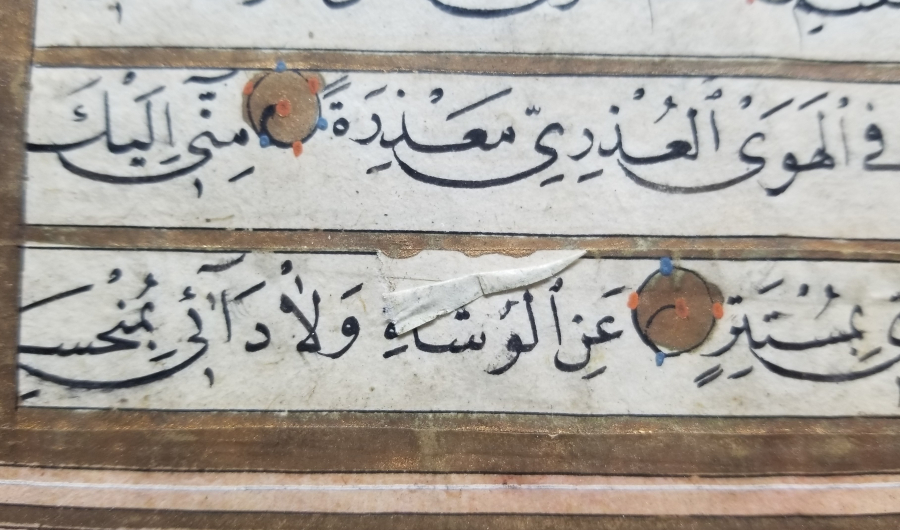 فِي الْهَوَىٰ الْعُذْرِيِّ مَعْذِرَةً مِنِّي إِلَيْكَ
بِمُسْتَتِرٍ عَنِ الْوُشَاةِ وَلَا دَآئِي بِمُنْحَسِمِ